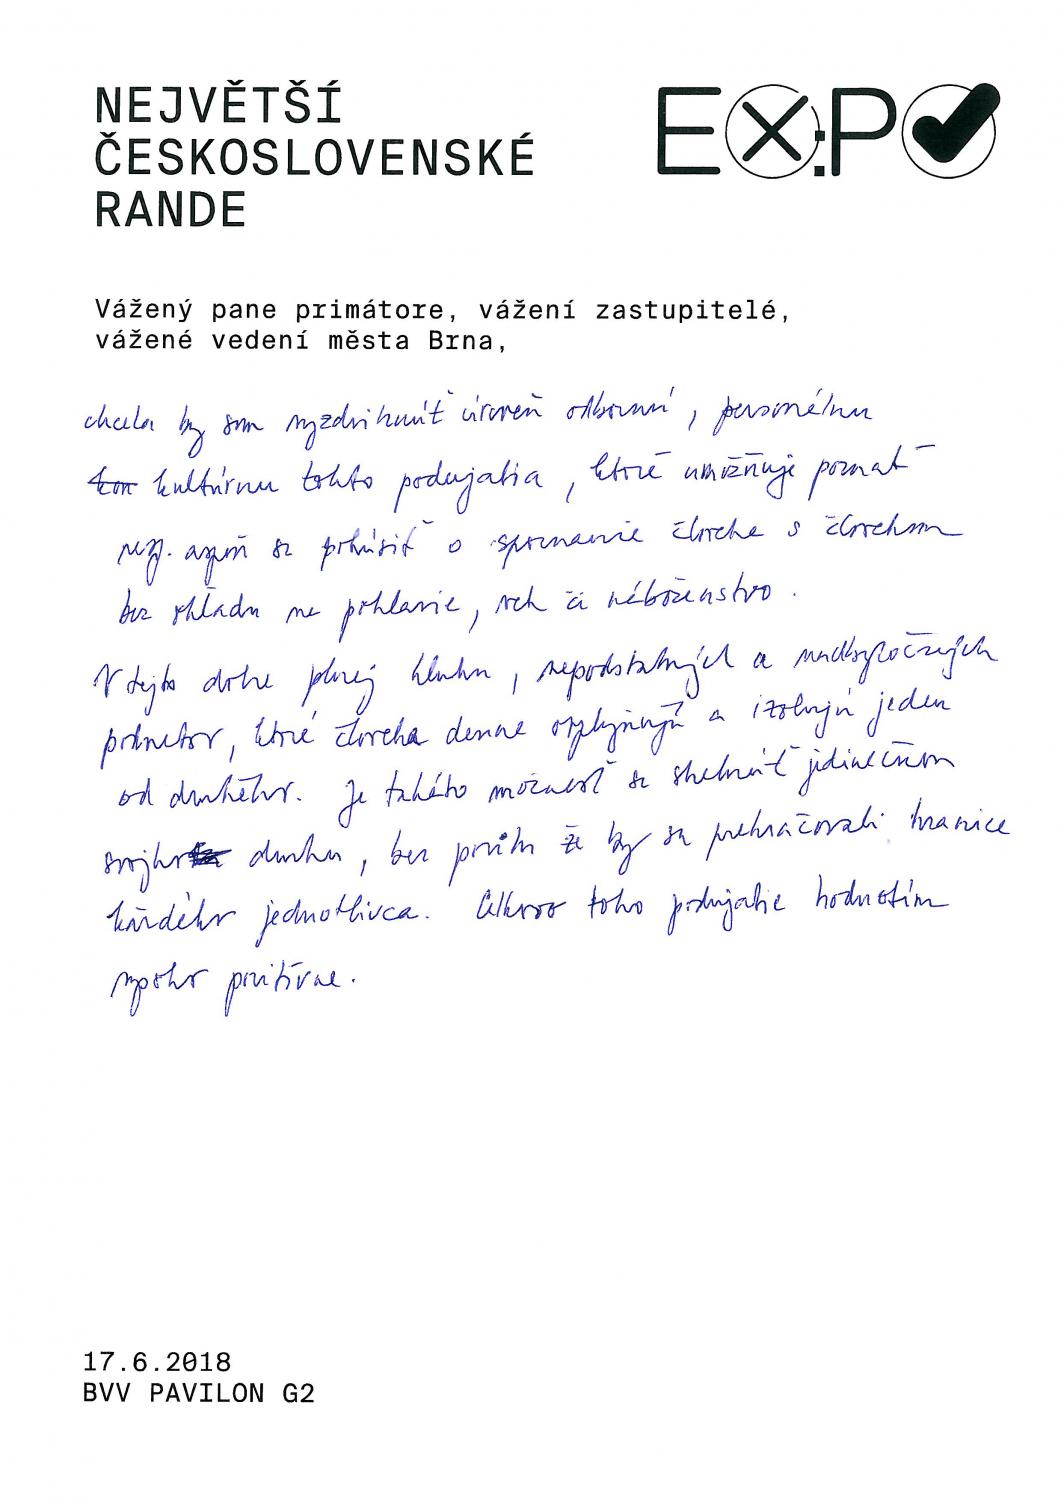 NEJVĚTŠÍ
ČESKOSLOVENSKÉ
RANDE
EX:PO
Vážený pane primátore, vážení zastupitelé,
vážené vedení města Brna,
chcela by som vyzdvihnúť úroveň odbornú, personálnu
kultúrnu tohto podujatia, ktoré umožňuje poznať
resp. aspoň sa pokúsiť o spoznanie človeka s človekom
bez ohľadu na pohlavie, vek či náboženstvo.
V tejto dobe plnej hluku, nepodstatných a nadbytočných
podnetov, ktoré človeka denne ovplyvňujú a izolujú jeden
od druhého. Je takáto možnosť sa stretnúť jedinečnou
svojho druhu, bez pritom že by sa prekračovali hranice
každého jednotlivca. Celkovo toho podujatie hodnotím
vysoko pozitívne.
17.6.2018
BVV PAVILON G2